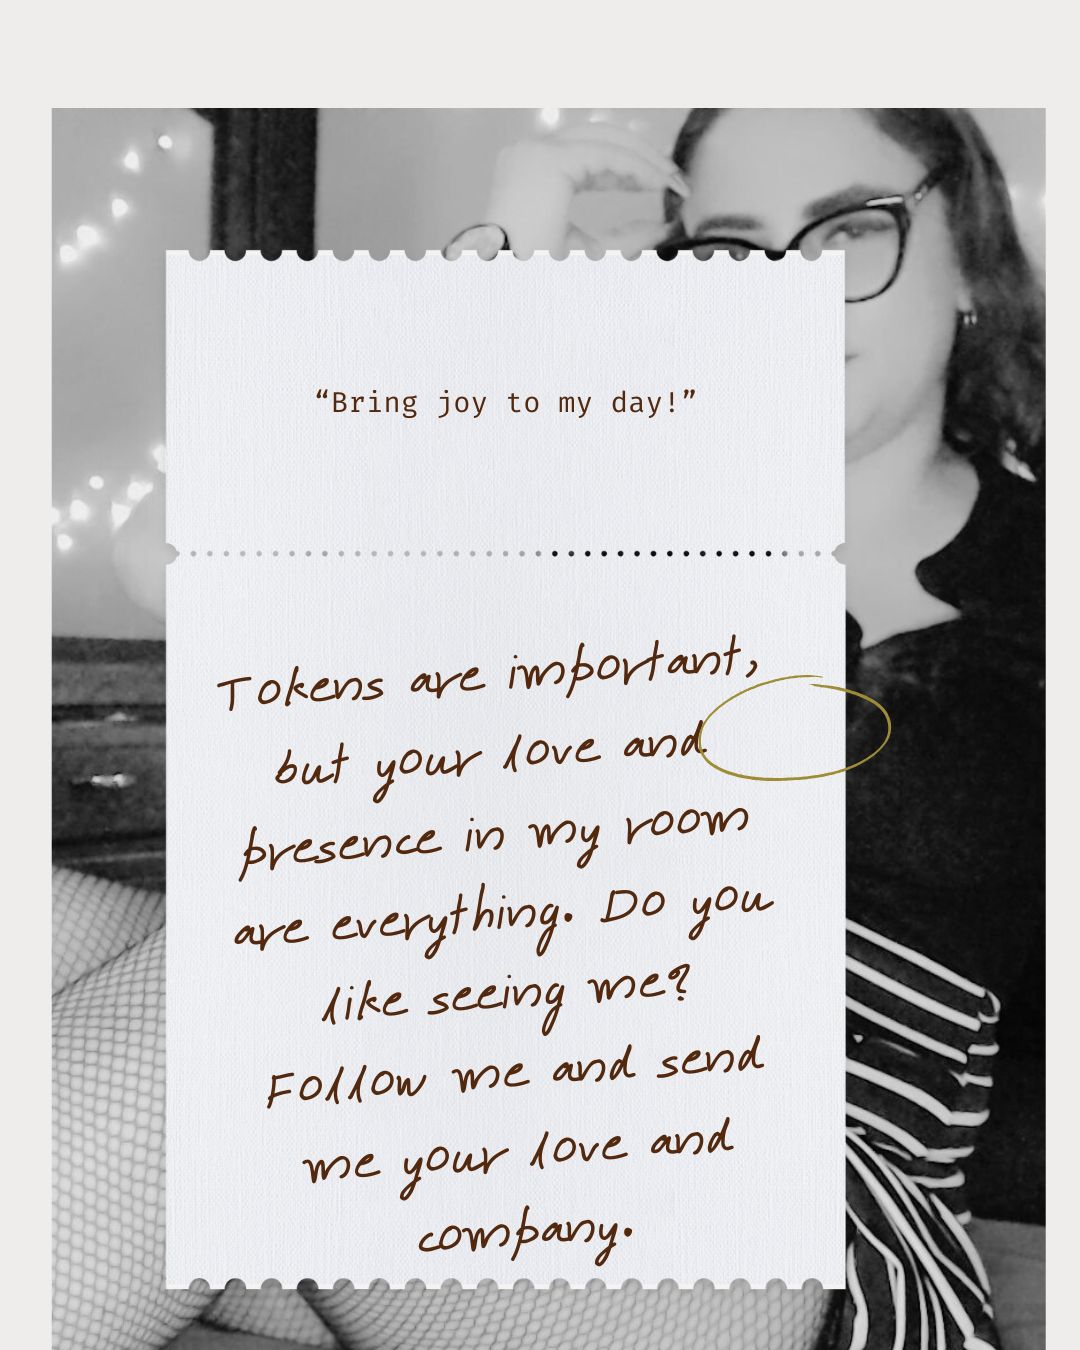 “Bring joy to my day!”
Tokens are important,
but your love and
presence in my room
are everything. Do you
like seeing me?
Follow me and send
me your love and
company.